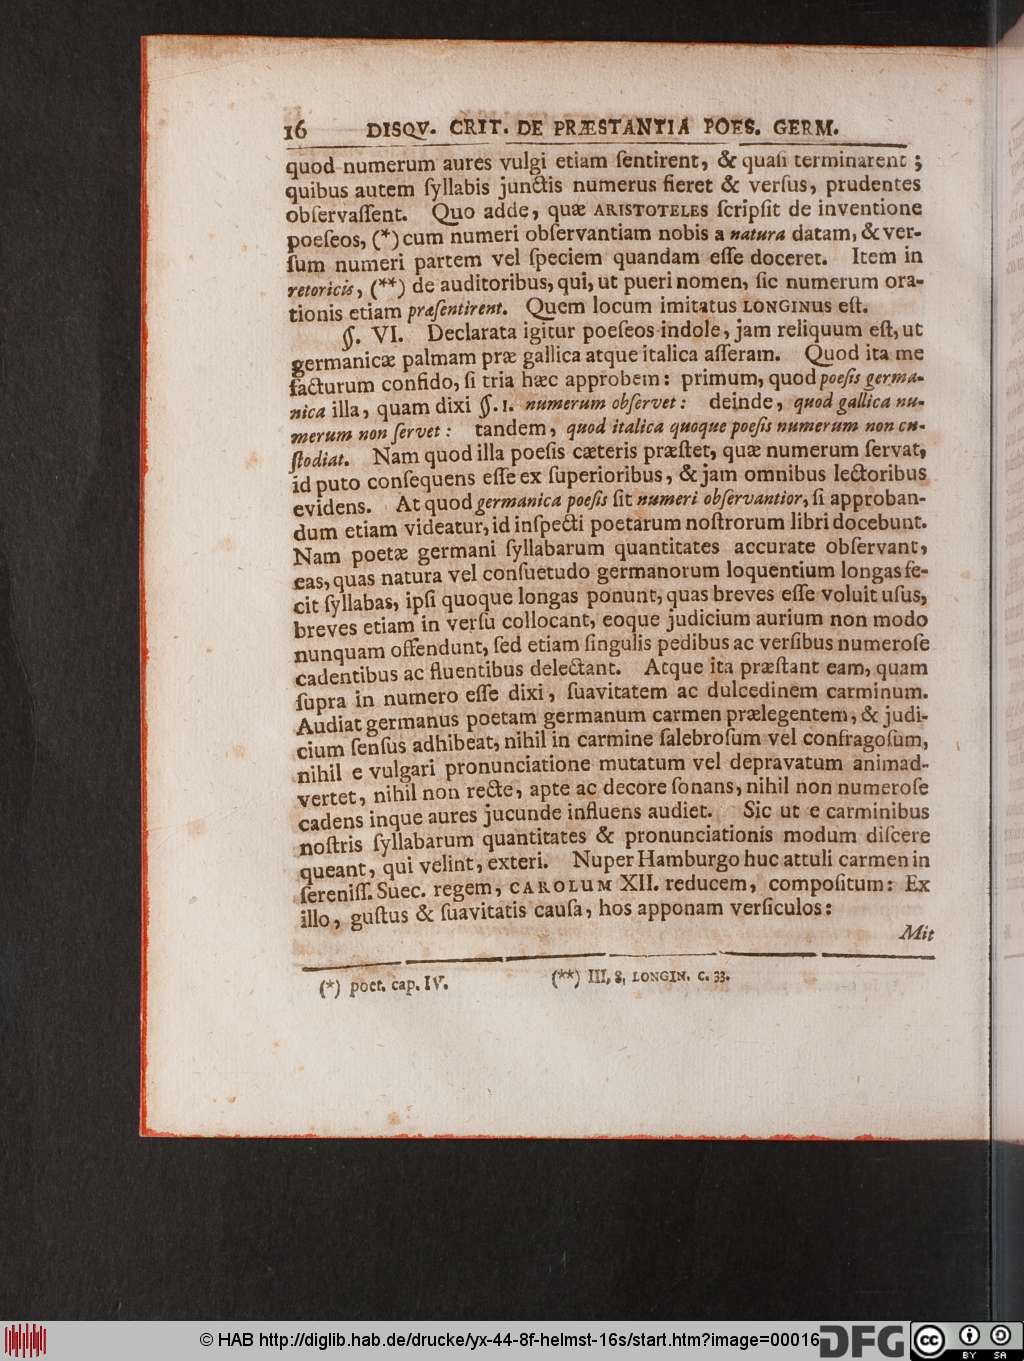 16 DISQV. CRIT. DE PRÆSTANTIA POES. GERM.
quod numerum aures vulgi etiam ſentirent, & quaſi terminarent;
quibus autem ſyllabis junctis numerus fieret & verſus, prudentes
obſervaſſent. Quo adde, quæ ARISTOTELES ſcripſit de inventione
poeſeos, (*) cum numeri obſervantiam nobis a natura datam, & ver-
ſum numeri partem vel ſpeciem quandam eſſe doceret. Item in
retoricis, (**) de auditoribus, qui, ut pueri nomen, ſic numerum ora-
tionis etiam præſentirent. Quem locum imitatus LONGINUS eſt.
§. VI. Declarata igitur poeſeos indole, jam reliquum eſt, ut
germanicæ palmam præ gallica atque italica aſſeram. Quod ita me
facturum confido, ſi tria hæc approbem: primum, quod poeſis germa-
nica illa, quam dixi §. 1. numerum obſervet: deinde, quod gallica nu-
merum non ſervet: tandem, quod italica quoque poeſis numerum non cu-
ſtodiat. Nam quod illa poeſis cæteris præſtet, quæ numerum ſervat,
id puto conſequens eſſe ex ſuperioribus, & jam omnibus lectoribus
evidens. At quod germanica poeſis ſit numeri obſervantior, ſi approban-
dum etiam videatur, id inſpecti poetarum noſtrorum libri docebunt.
Nam poetæ germani ſyllabarum quantitates accurate obſervant,
eas, quas natura vel conſuetudo germanorum loquentium longas fe-
cit ſyllabas, ipſi quoque longas ponunt, quas breves eſſe voluit uſus,
breves etiam in verſu collocant, eoque judicium aurium non modo
nunquam offendunt, ſed etiam ſingulis pedibus ac verſibus numeroſe
cadentibus ac fluentibus delectant. Atque ita præſtant eam, quam
ſupra in numero eſſe dixi, ſuavitatem ac dulcedinem carminum.
Audiat germanus poetam germanum carmen prælegentem, & judi-
cium ſenſus adhibeat, nihil in carmine ſalebroſum vel confragoſum,
nihil e vulgari pronunciatione mutatum vel depravatum animad-
vertet, nihil non recte, apte ac decore ſonans, nihil non numeroſe
cadens inque aures jucunde influens audiet. Sic ut e carminibus
noſtris ſyllabarum quantitates & pronunciationis modum diſcere
queant, qui velint, exteri. Nuper Hamburgo huc attuli carmen in
ſereniſſ. Suec. regem, CAROLUM XII. reducem, compoſitum: Ex
illo, guſtus & ſuavitatis cauſa, hos apponam verſiculos:
Mit
(*) poet. cap. IV. (**) III, 8, LONGIN. c. 33.
© HAB http://diglib.hab.de/drucke/yx-44-8f-helmst-16s/start.htm?image=00016
DFG
cc BY SA